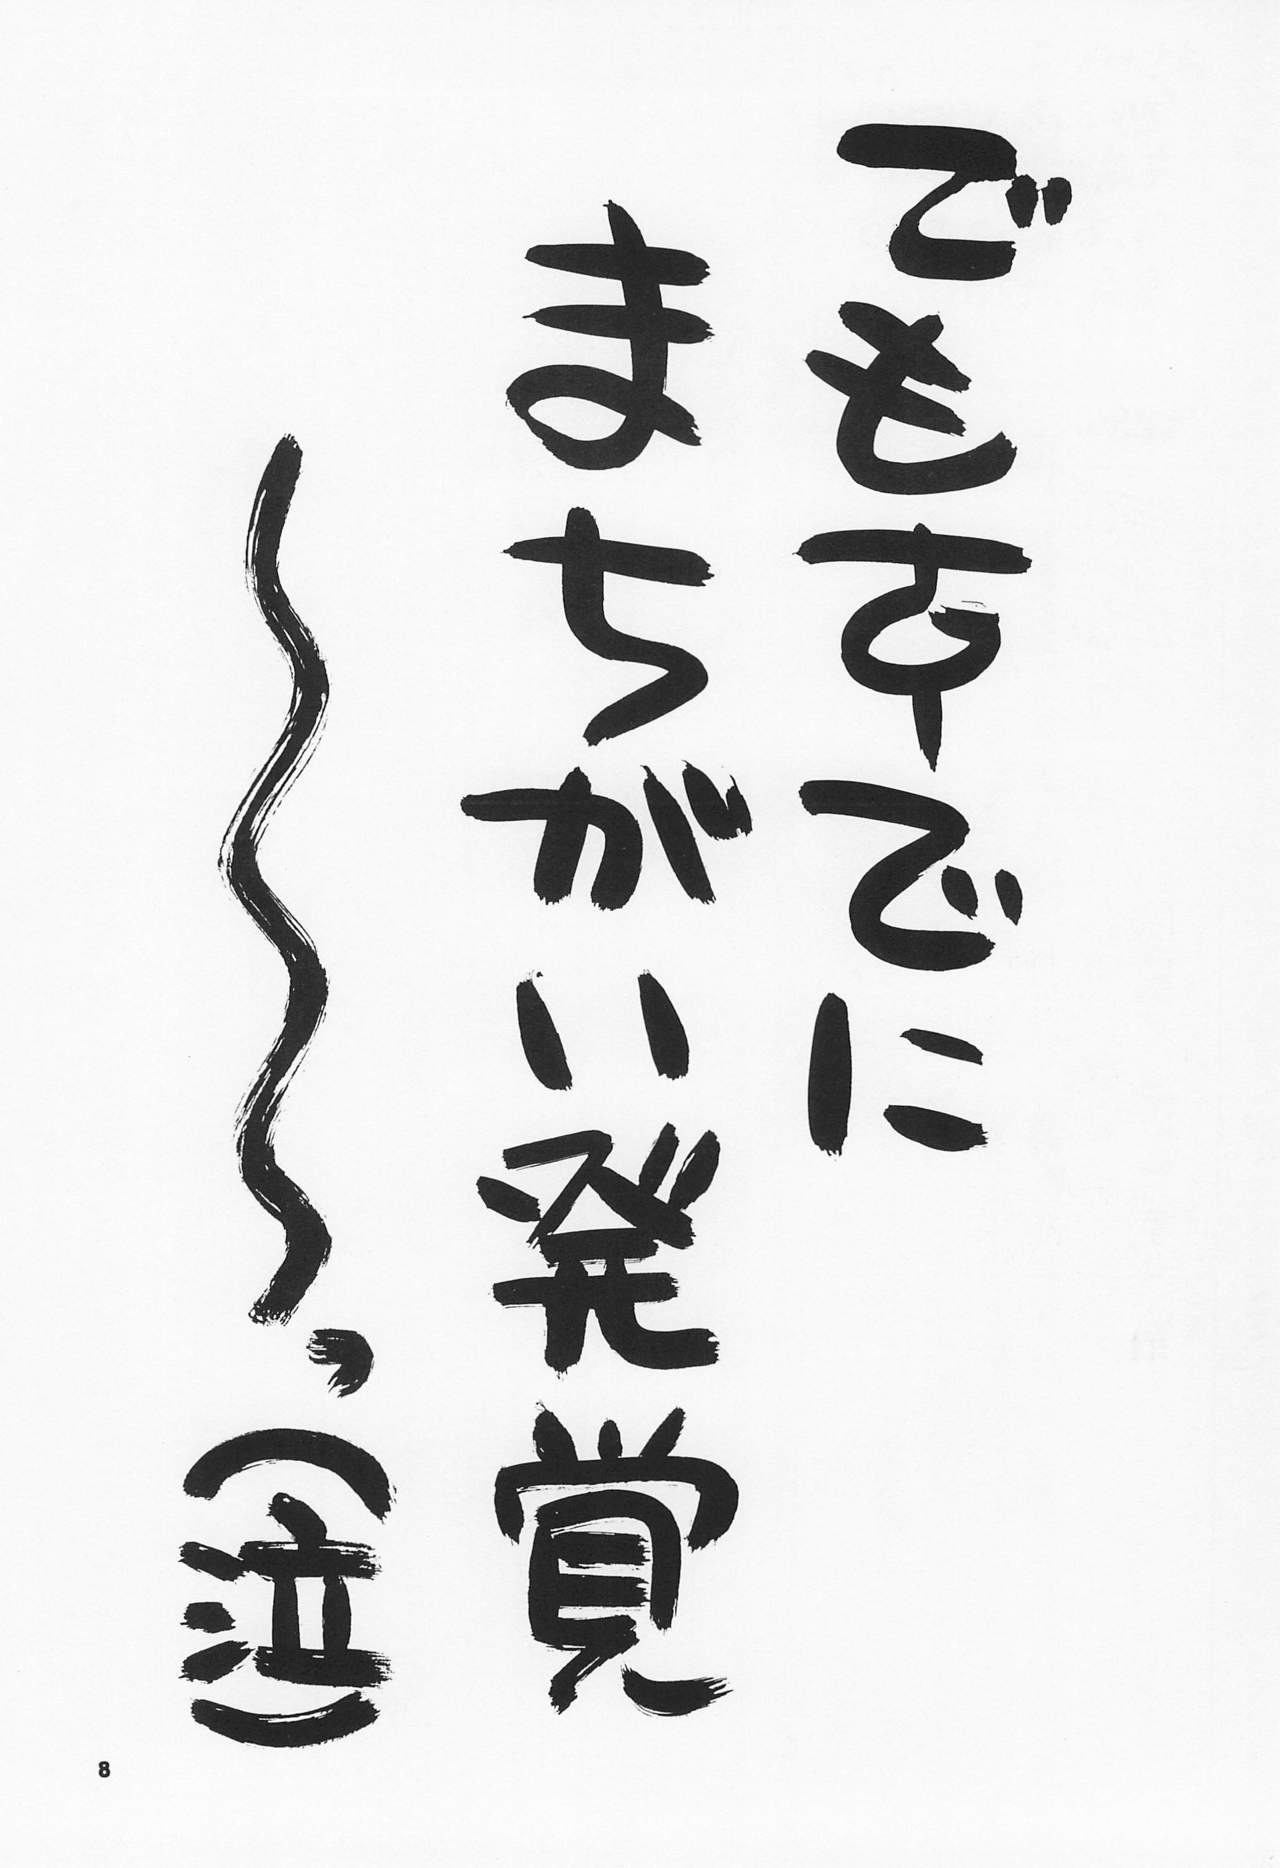 でもすでに
まちがい発覚
〜、(泣)
8